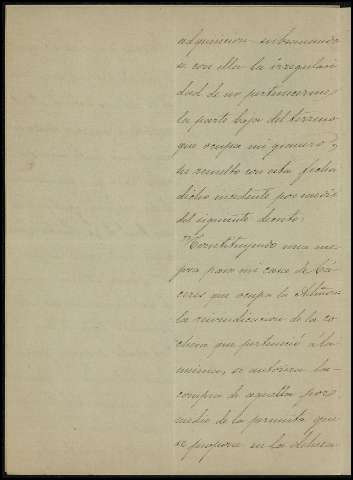 adquisicion subsanando
se con ella la irregulari
dad de no pertenecerme
la parte baja del terreno
que ocupa mi granero y
he resuelto con esta fecha
dicho incidente por medio
del siguiente decreto:
"Constituyendo una me-
jora para mi casa de Cá-
ceres que ocupa la
la reivindicacion de la co
chera que perteneció á la
misma, se autoriza la
compra de aquella por
medio de la permuta que
se propone en la dehesa